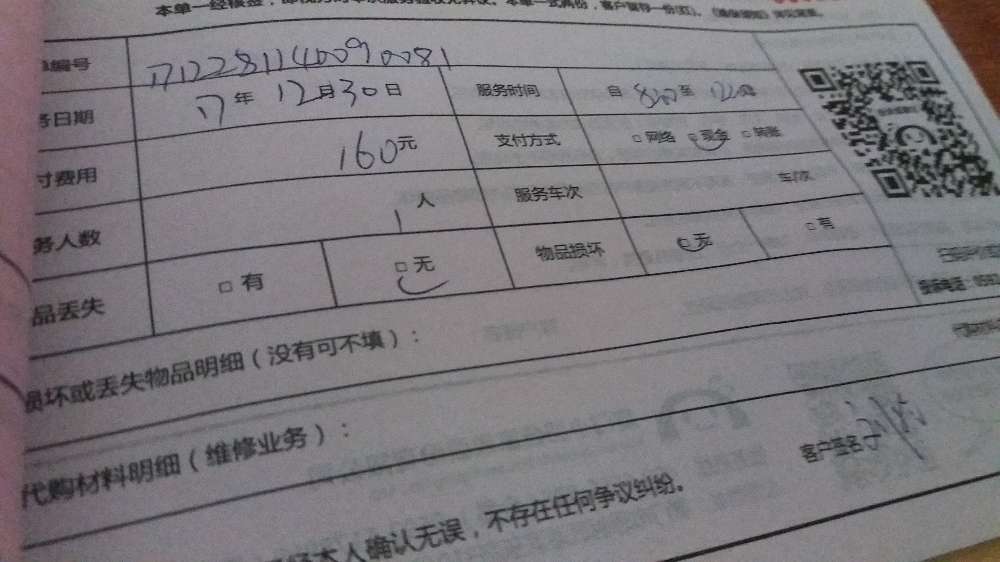 本单一经核签，即视为对本次服务验收无异议。本单一式两份，客户留存一份(红)。
单编号 1712281140090081
务日期 17年 12月30日 服务时间 自 8:00 至 12:00
付费用 160元 支付方式 □网络 □现金 □转账
务人数 1人 服务车次 车/次
品丢失 □有 □无 物品损坏 □无 □有
损坏或丢失物品明细（没有可不填）：
代购材料明细（维修业务）：
客户签名
经本人确认无误，不存在任何争议纠纷。